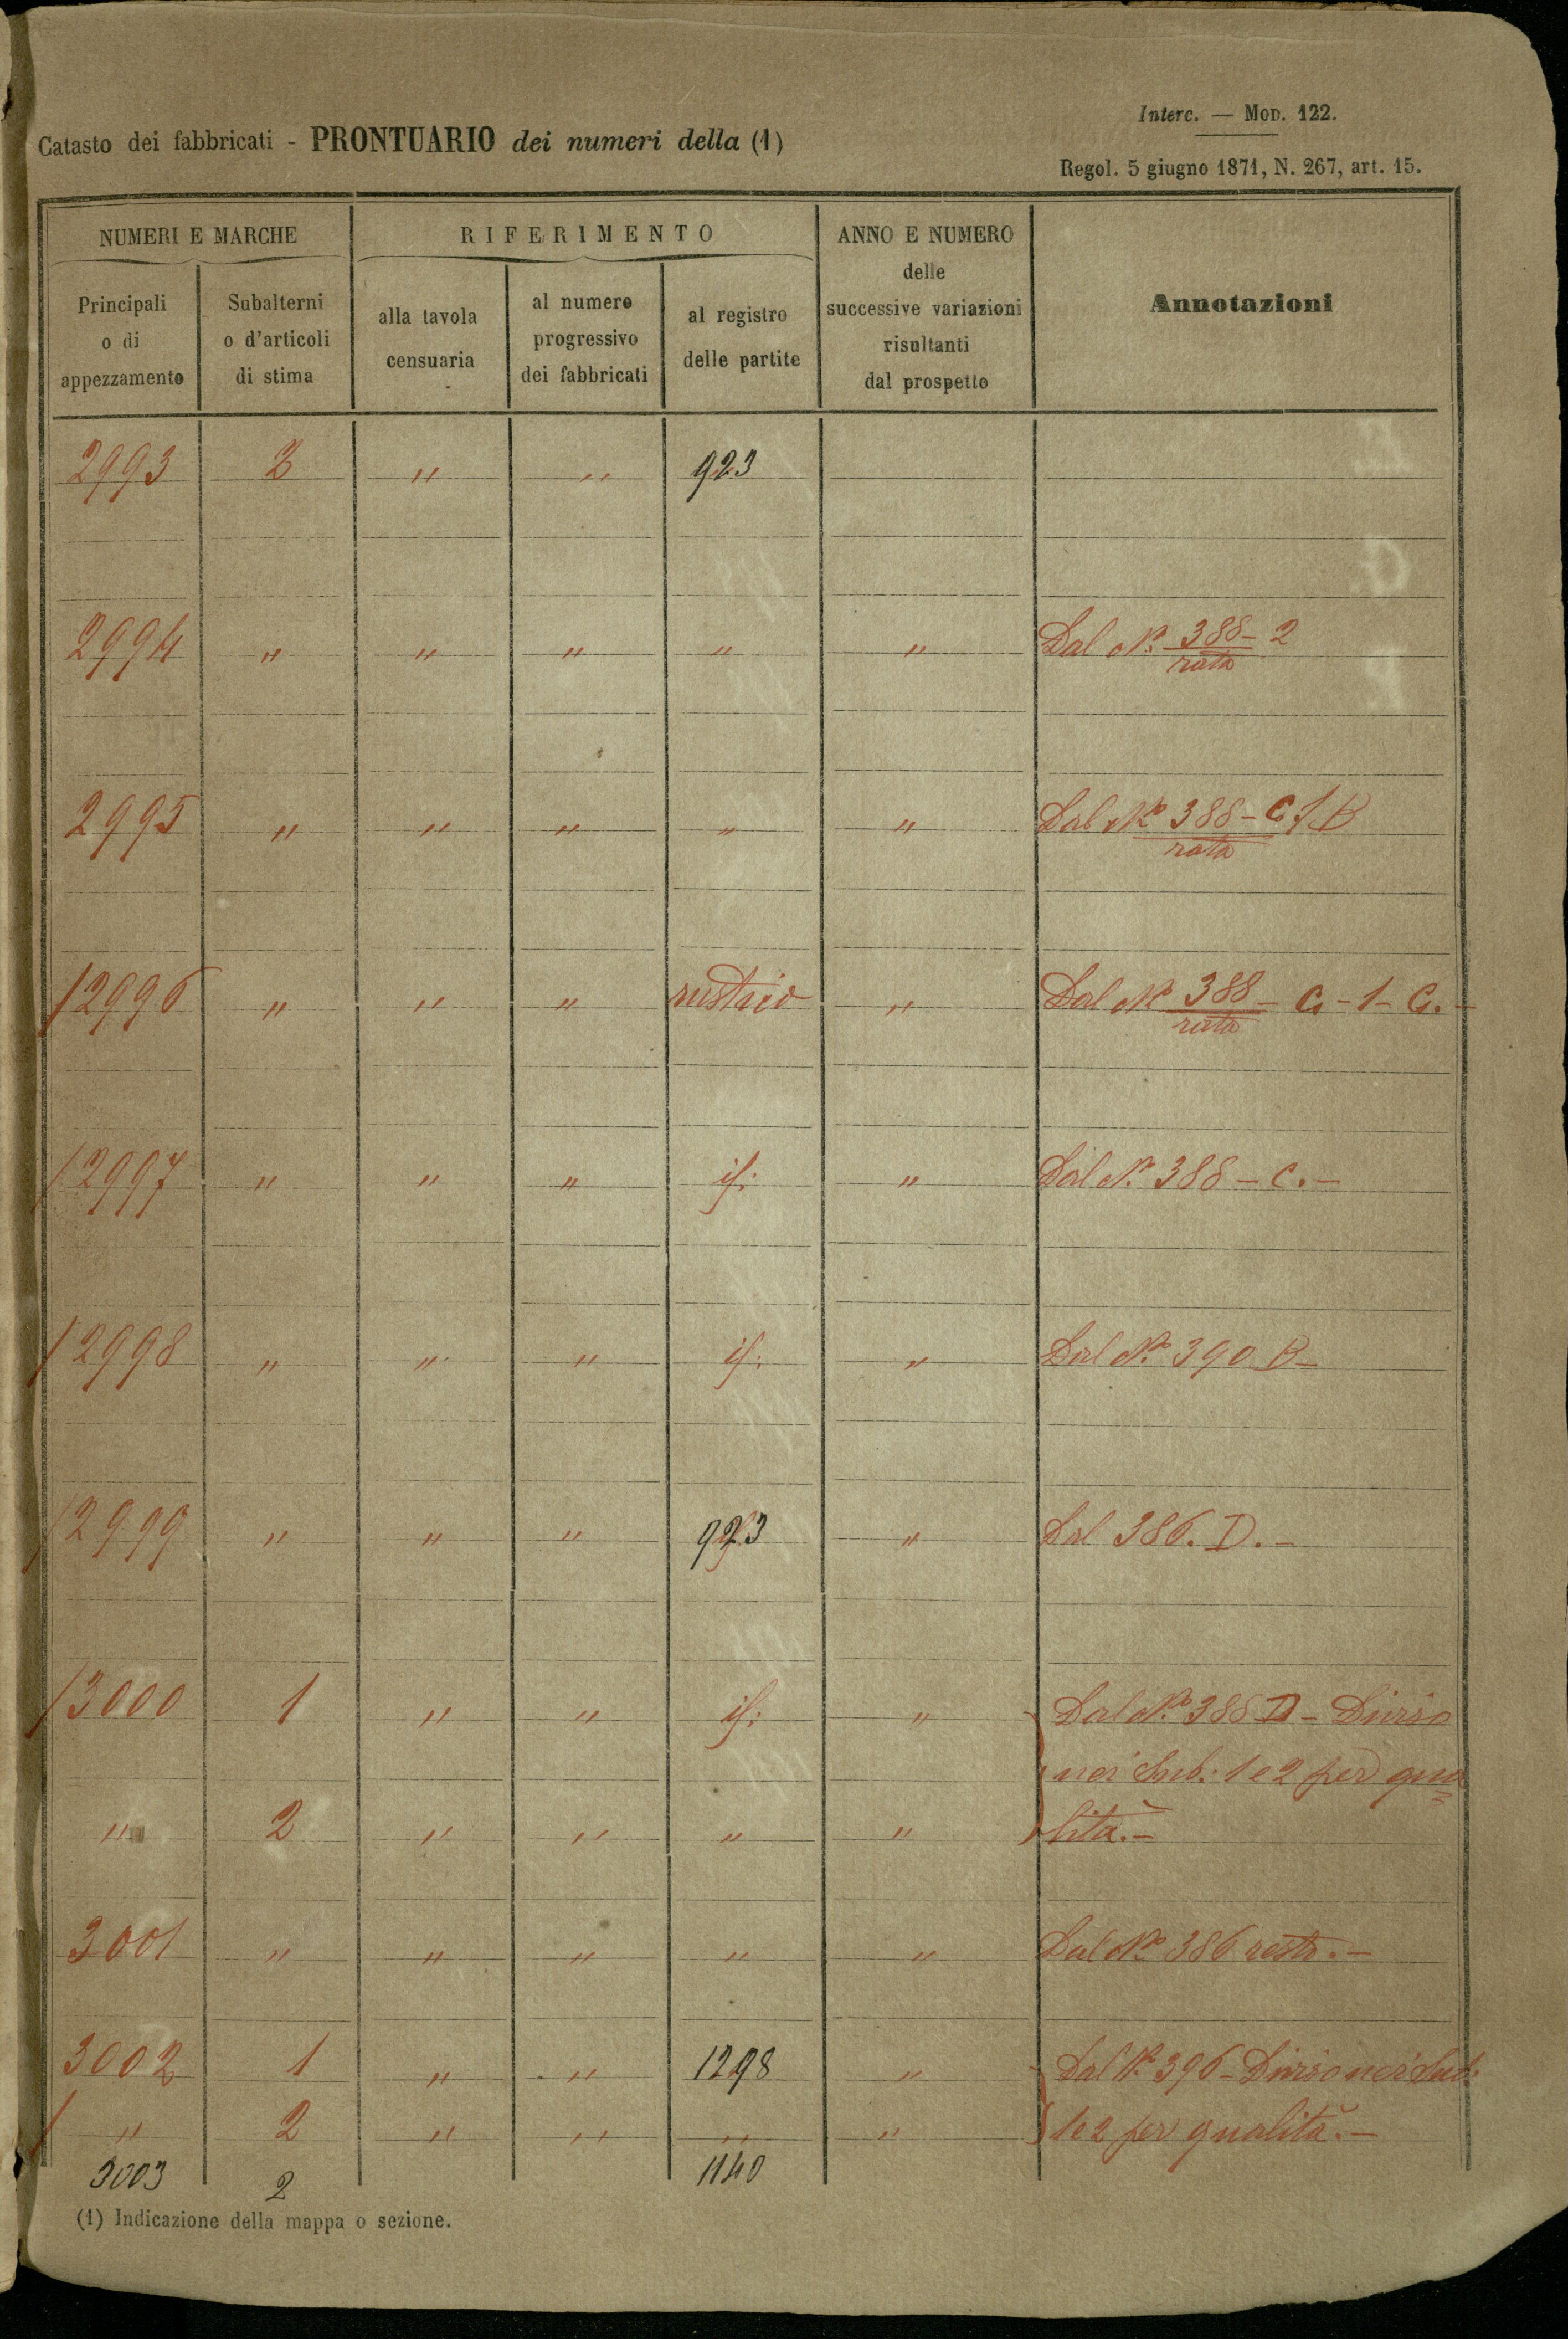 Interc. — Mod. 122.
Catasto dei fabbricati - PRONTUARIO dei numeri della (1)
Regol. 5 giugno 1871, N. 267, art. 15.
NUMERI E MARCHE
RIFERIMENTO
ANNO E NUMERO
delle
successive variazioni
risultanti
dal prospetto
Annotazioni
Principali
o di
appezzamento
Subalterni
o d'articoli
di stima
alla tavola
censuaria
al numero
progressivo
dei fabbricati
al registro
delle partite
2993 " " 923
2994 " " " " " Dal N.° 388 - 2
rata
2995 " " " " " Dal N.° 388 - C 1 B
rata
/ 2996 " " " rustico " Dal N.° 388 - C - 1 - C. -
rata
/ 2997 " " " if: " Dal N.° 388 - C. -
/ 2998 " " " if: " Dal N.° 390 B -
/ 2999 " " " 923 " Dal 386. D. -
/ 3000 1 " " if: " Dal N.° 388 D - Diviso
nei Sub: 1 e 2 per qua=
" 2 " " " " lità. -
3001 " " " " " Dal N.° 386 resto. -
3002 1 " " 1298 " Dal N.° 396 - Diviso nei Sub:
/ " 2 " " " " 1 e 2 per qualità. -
3003 2 1140
(1) Indicazione della mappa o sezione.